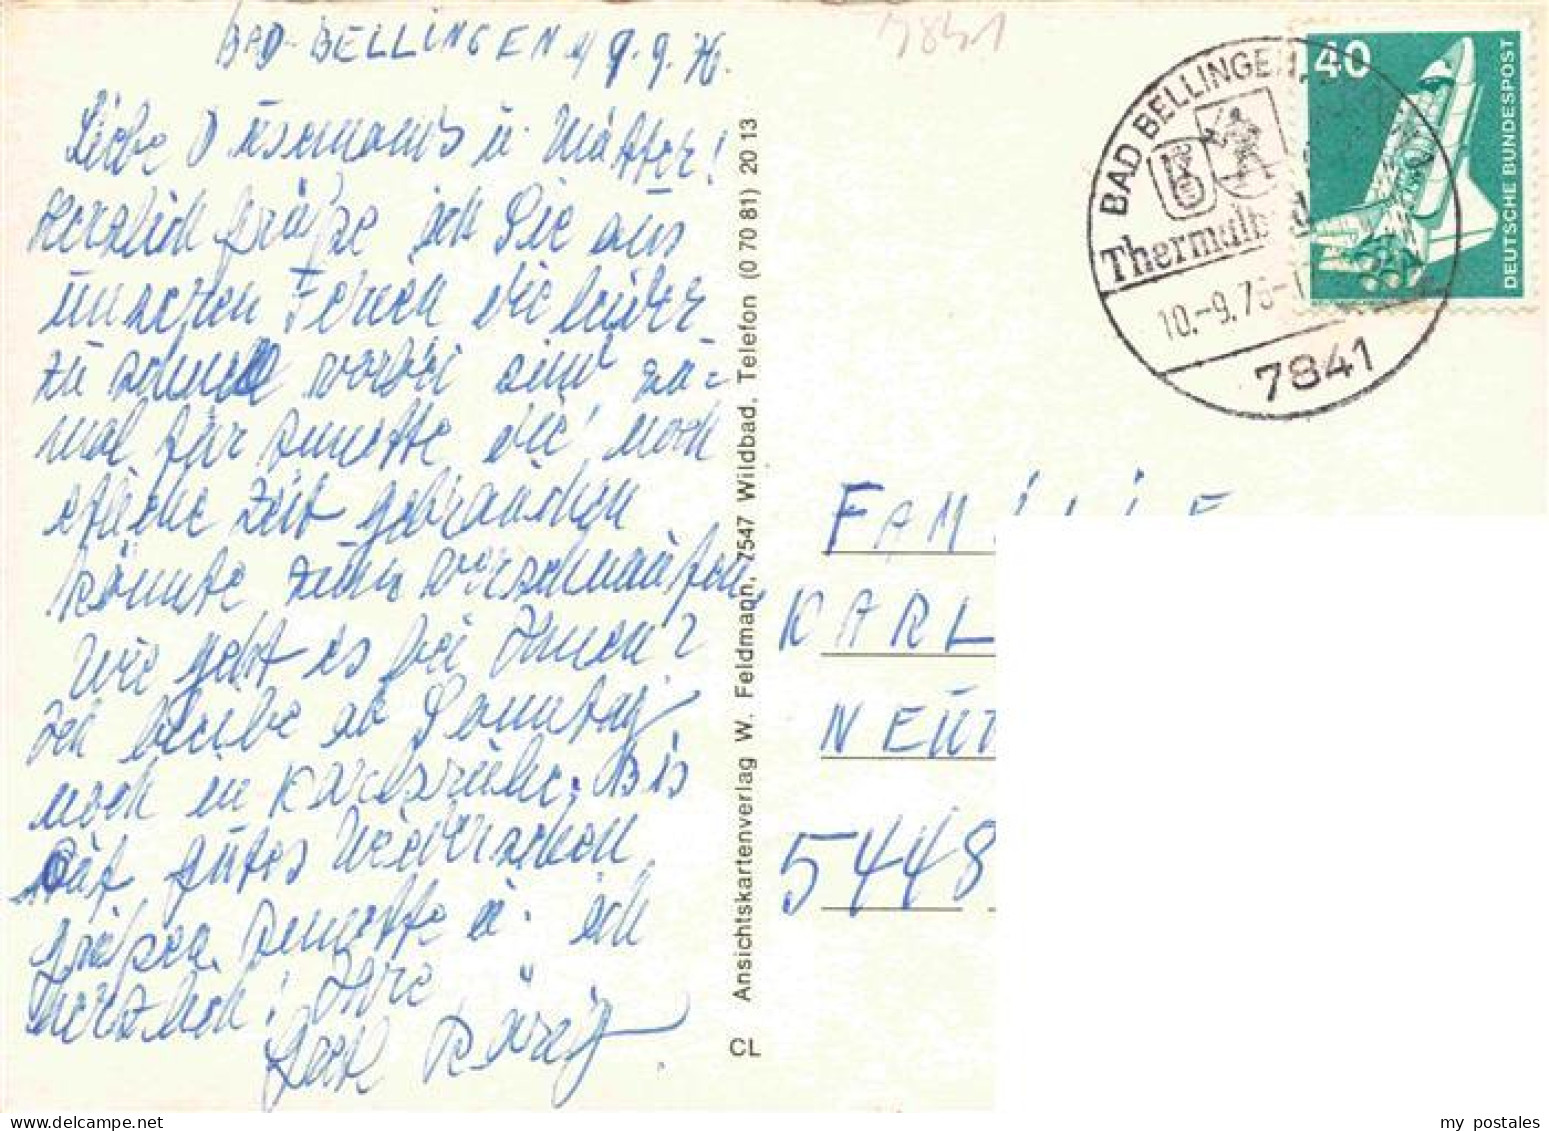 BAD-BELLINGEN 9.9.76.
Liebe Düsemanns u. Mutter!
Herzlich grüße ich Sie aus
unserem Ferien die leider
zu schnell vorbei sind zu-
mal für Annette die noch
etliche Zeit gebrauchen
könnte zum verschnaufen.
Wie geht es bei Ihnen?
Ich bleibe ab Sonntag
noch in Karlsruhe. Bis
gutes Wiedersehen
grüßen Annette u. ich
herzlich! Ihre
CL Ansichtskartenverlag W. Feldmann, 7547 Wildbad, Telefon (0 70 81) 20 13
7841
BAD BELLINGEN
Thermalbad
10.-9.76-
7841
40
DEUTSCHE BUNDESPOST
FAMILIE
KARL
NEU
5448
my postales